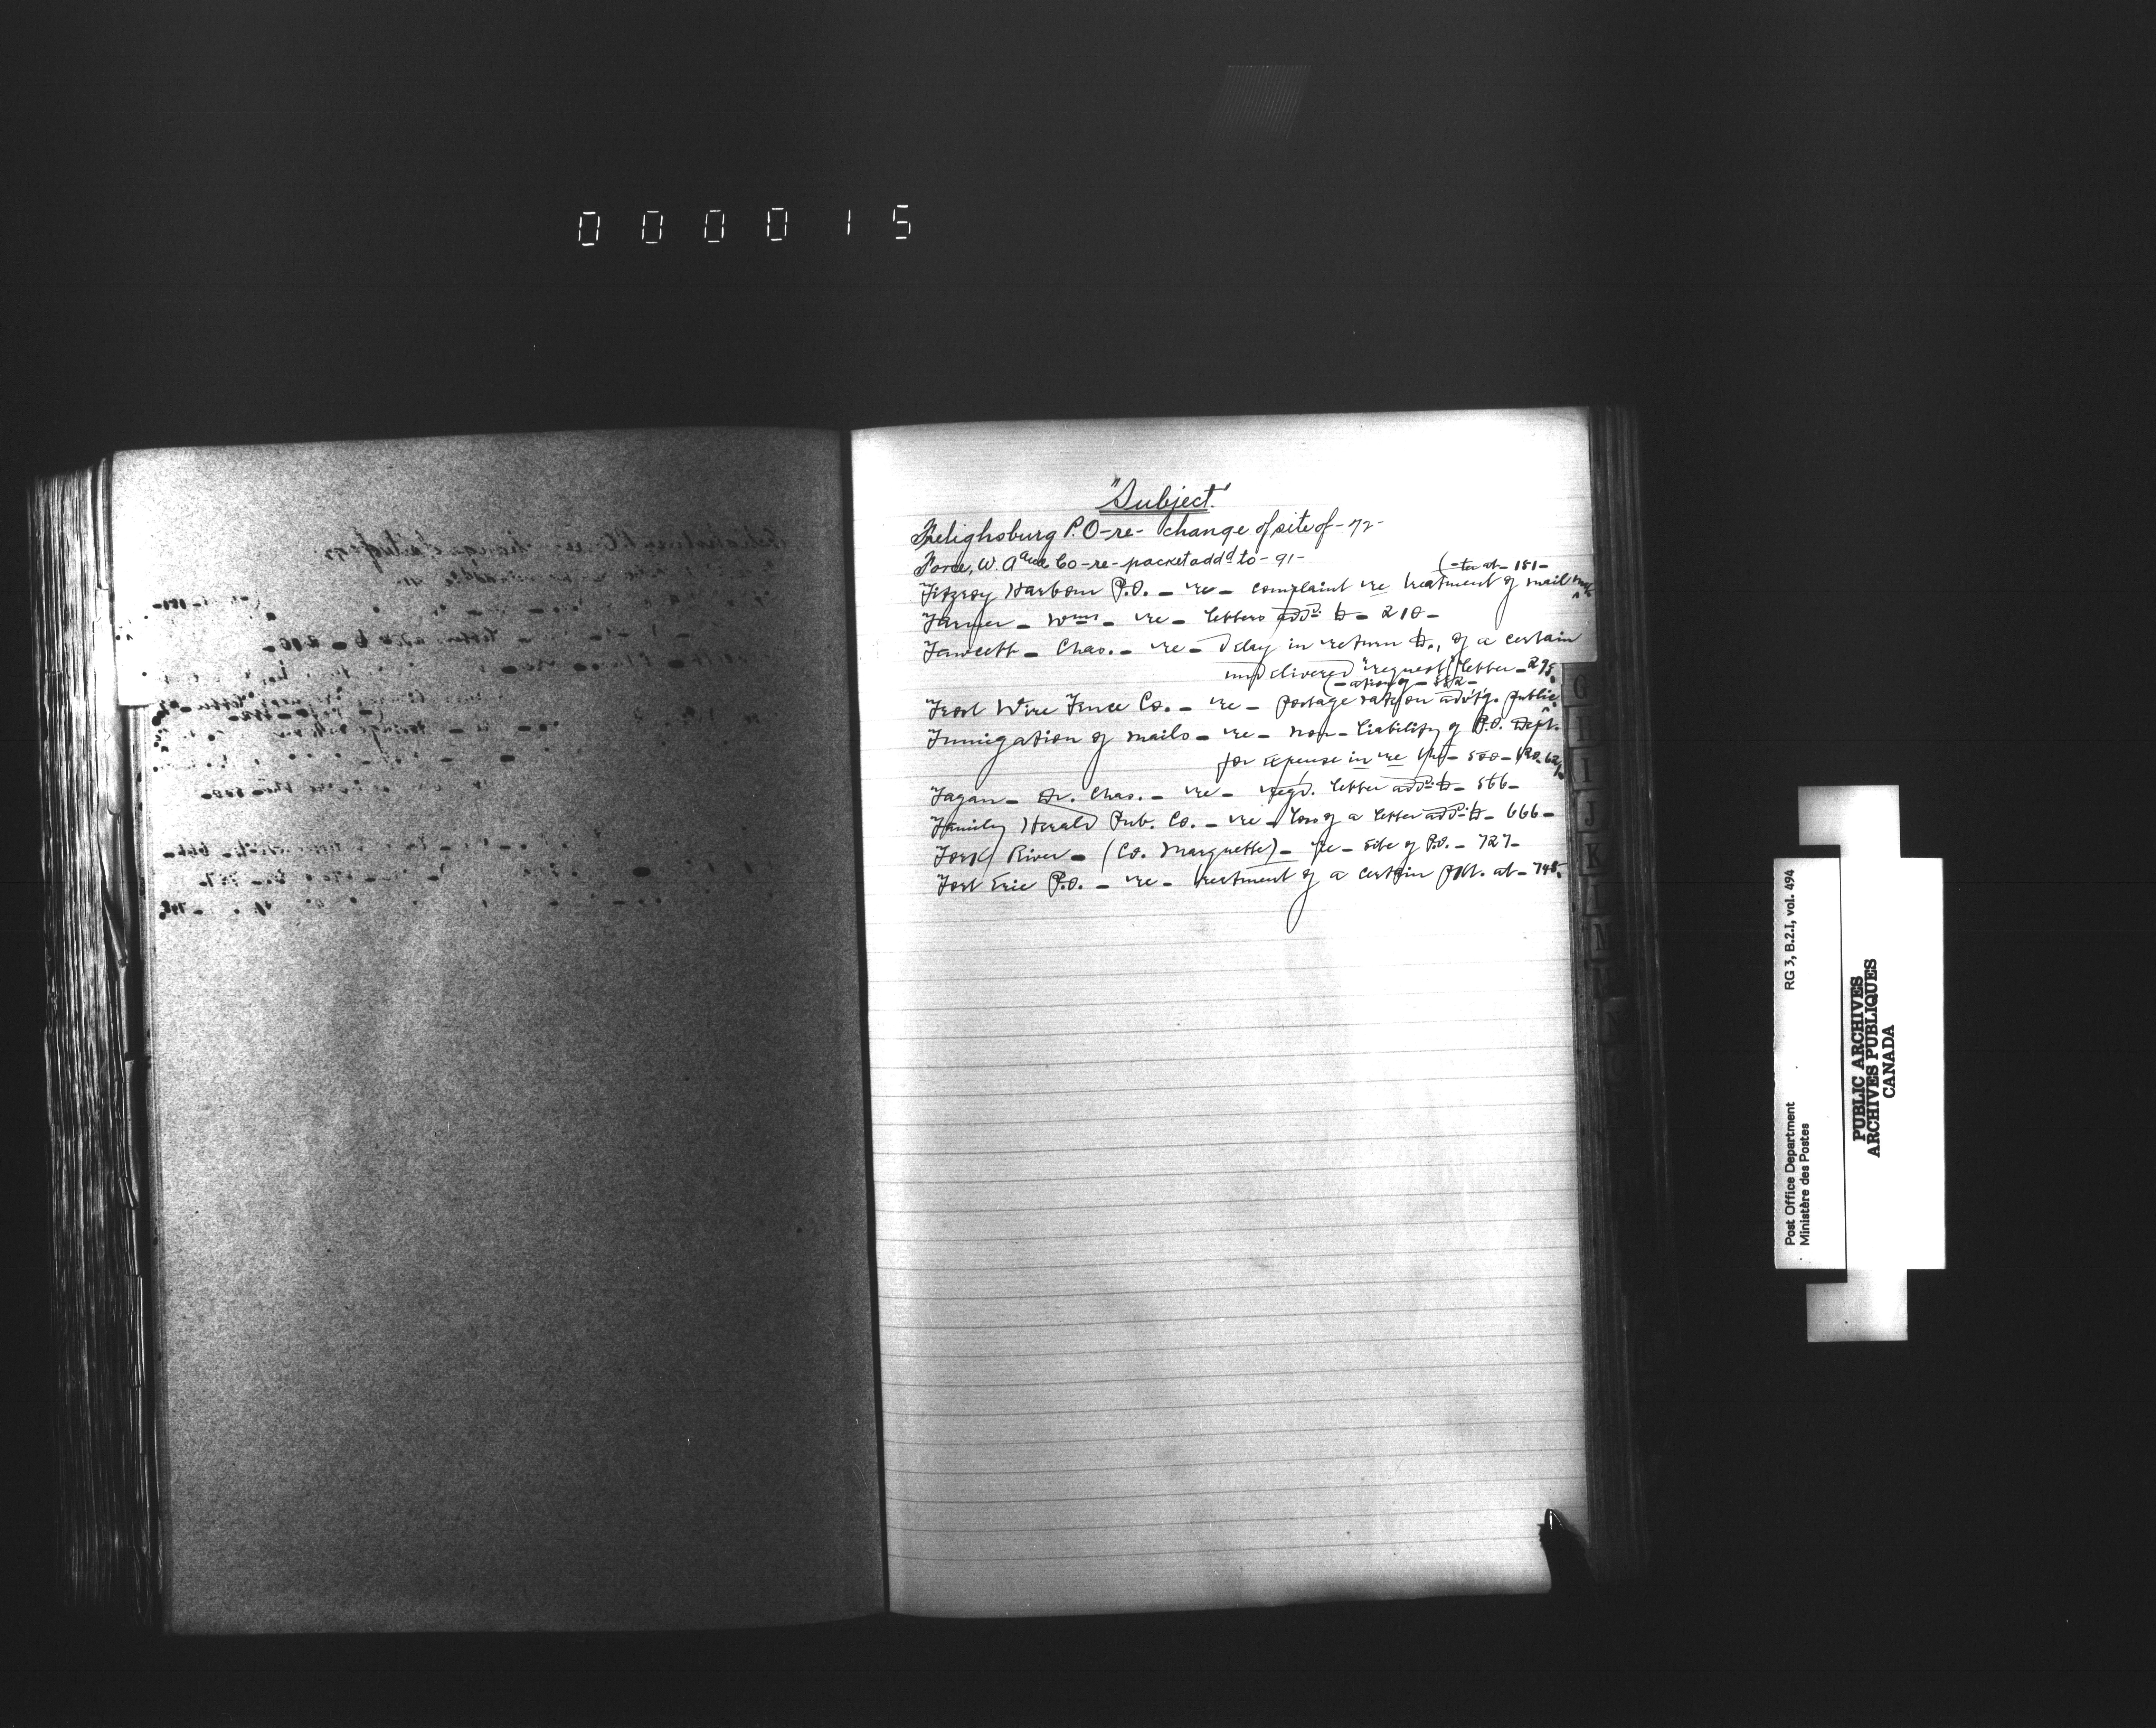 000015
"Subject"
Frelighsburg P.O-re- change of site of-72-
Force, W. A and Co-re-packet addd to-91-
(-ter at-151-
Fitzroy Harbour P.O. - re - complaint re treatment of mail
Farmer - Wm - re - letters add'd to - 210 -
Fawcett - Chas. - re - delay in return to, of a certain
undelivered "request" letter - 275.
(-ation of - 352-
Frost Wire Fence Co. - re - postage rate on advt'g. public
Fumigation of mails - re - non-liability of P.O. Dept.
for expense in re the - 500 -
Fagan - Dr. Chas. - re - regd. letter add'd to - 566 -
Family Herald Pub. Co. - re - loss of a letter add'd to - 666 -
Fork River - (Co. Marquette) - re - site of P.O. - 727 -
Fort Erie P.O. - re - treatment of a certain at - 748.
G
H
I
J
K
L
M
N
Post Office Department
Ministère des Postes
RG 3, B.2.I, vol. 494
PUBLIC ARCHIVES
ARCHIVES PUBLIQUES
CANADA